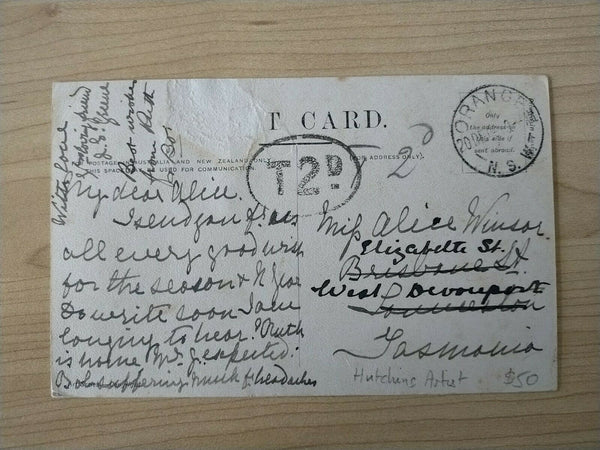 T CARD.
ORANGE
N.S.W
Only
the address on
this side if
sent abroad.
POSTAGE AUSTRALIA AND NEW ZEALAND ONLY
THIS SPACE USED FOR COMMUNICATION.
ADDRESS ONLY)
T2D
2d
With love
J. E. Greene
Best wishes
from Ruth
& Bob
My dear Alice.
I send you
all every good wish
for the season & N Year
Do write soon I am
longing to hear. Ruth
is home
Bob suffering much fr headaches
Miss Alice Winsor
Elizabeth St.
Brisbane St.
West Devonport
Launceston
Tasmania
Hutchins Artist $50